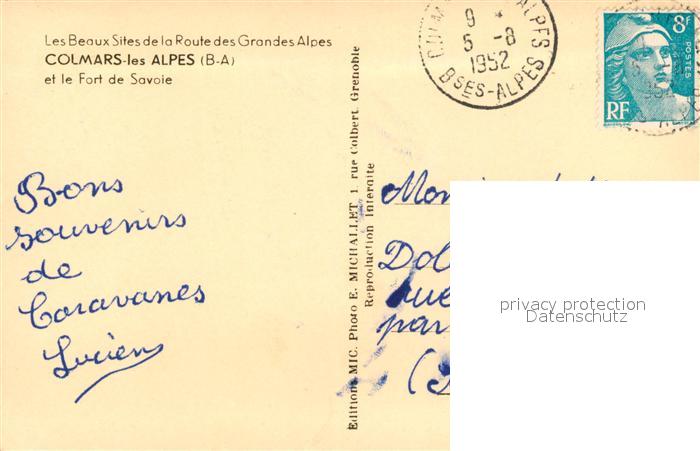 Les Beaux Sites de la Route des Grandes Alpes
COLMARS-les ALPES (B-A)
et le Fort de Savoie
Bons
souvenirs
de
Caravanes
Lucien
Editions MIC. Photo E. MICHALLET, 1, rue Colbert, Grenoble
Reproduction Interdite
9 *
5 -8
1952
ALPES
BSES-ALPES
8F
POSTES
RF
Dol
rue
par
privacy protection
Datenschutz